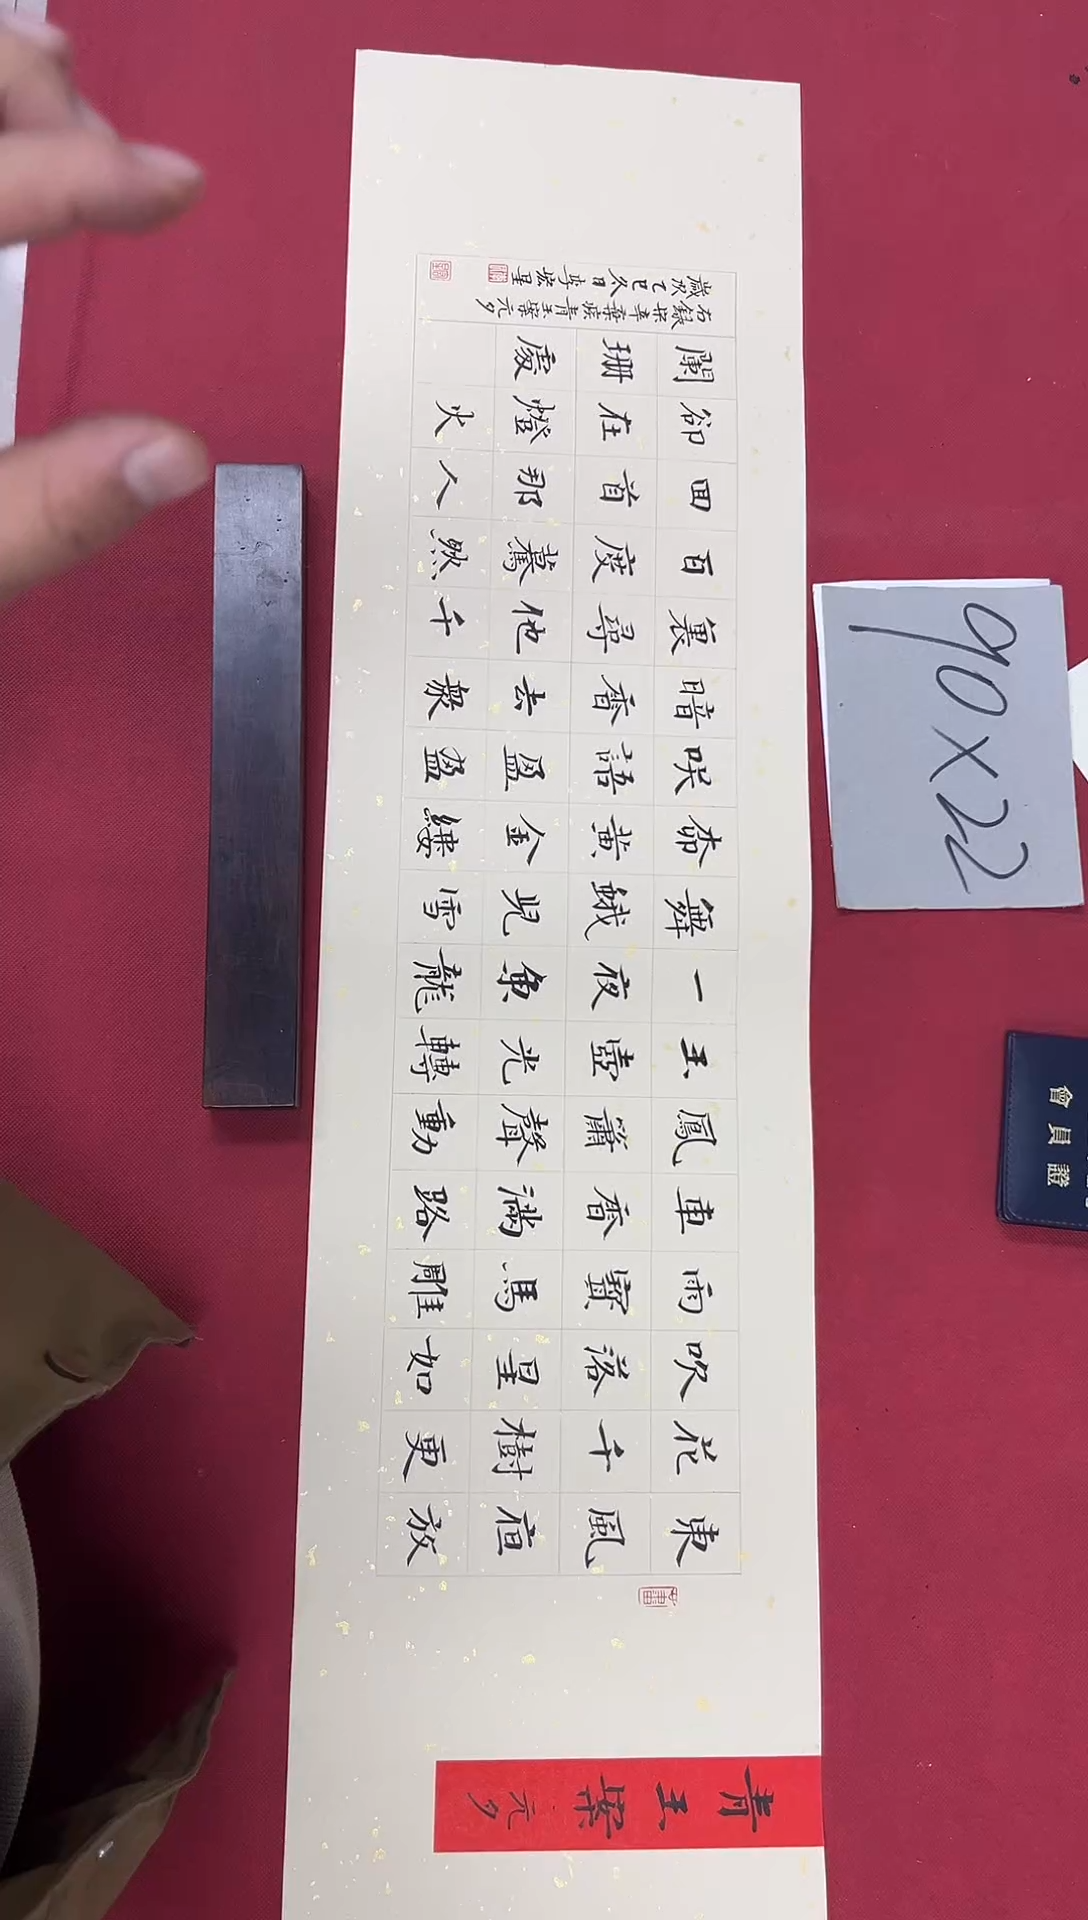 青玉案
元夕
東風亱放
花千樹更
吹落星如
雨寶馬雕
車香滿路
鳳簫聲動
玉壺光轉
一夜魚龍
舞蛾兒雪
桺黃金縷
咲語盈盈
暗香去眾
裏尋他千
百度驀然
囬首那人
卻在燈火
闌珊處
右錄宋辛棄疾青玉案元夕
歲次乙巳冬日李宏
90×22
會員證